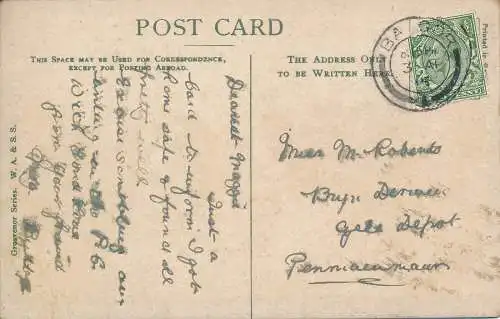 POST CARD
THIS SPACE MAY BE USED FOR CORRESPONDENCE,
EXCEPT FOR POSTING ABROAD.
THE ADDRESS ONLY
TO BE WRITTEN HERE.
Printed in
Grosvenor Series. W. A. & S. S.
Dearest Maggie
Just a
card to inform I got
home safe & found all
pretty well
Excuse scribbling am
writing in the P.O.
With fond love
from your friend
Miss M. Roberts
Bryn Derwen
Depot
Penmaenmawr